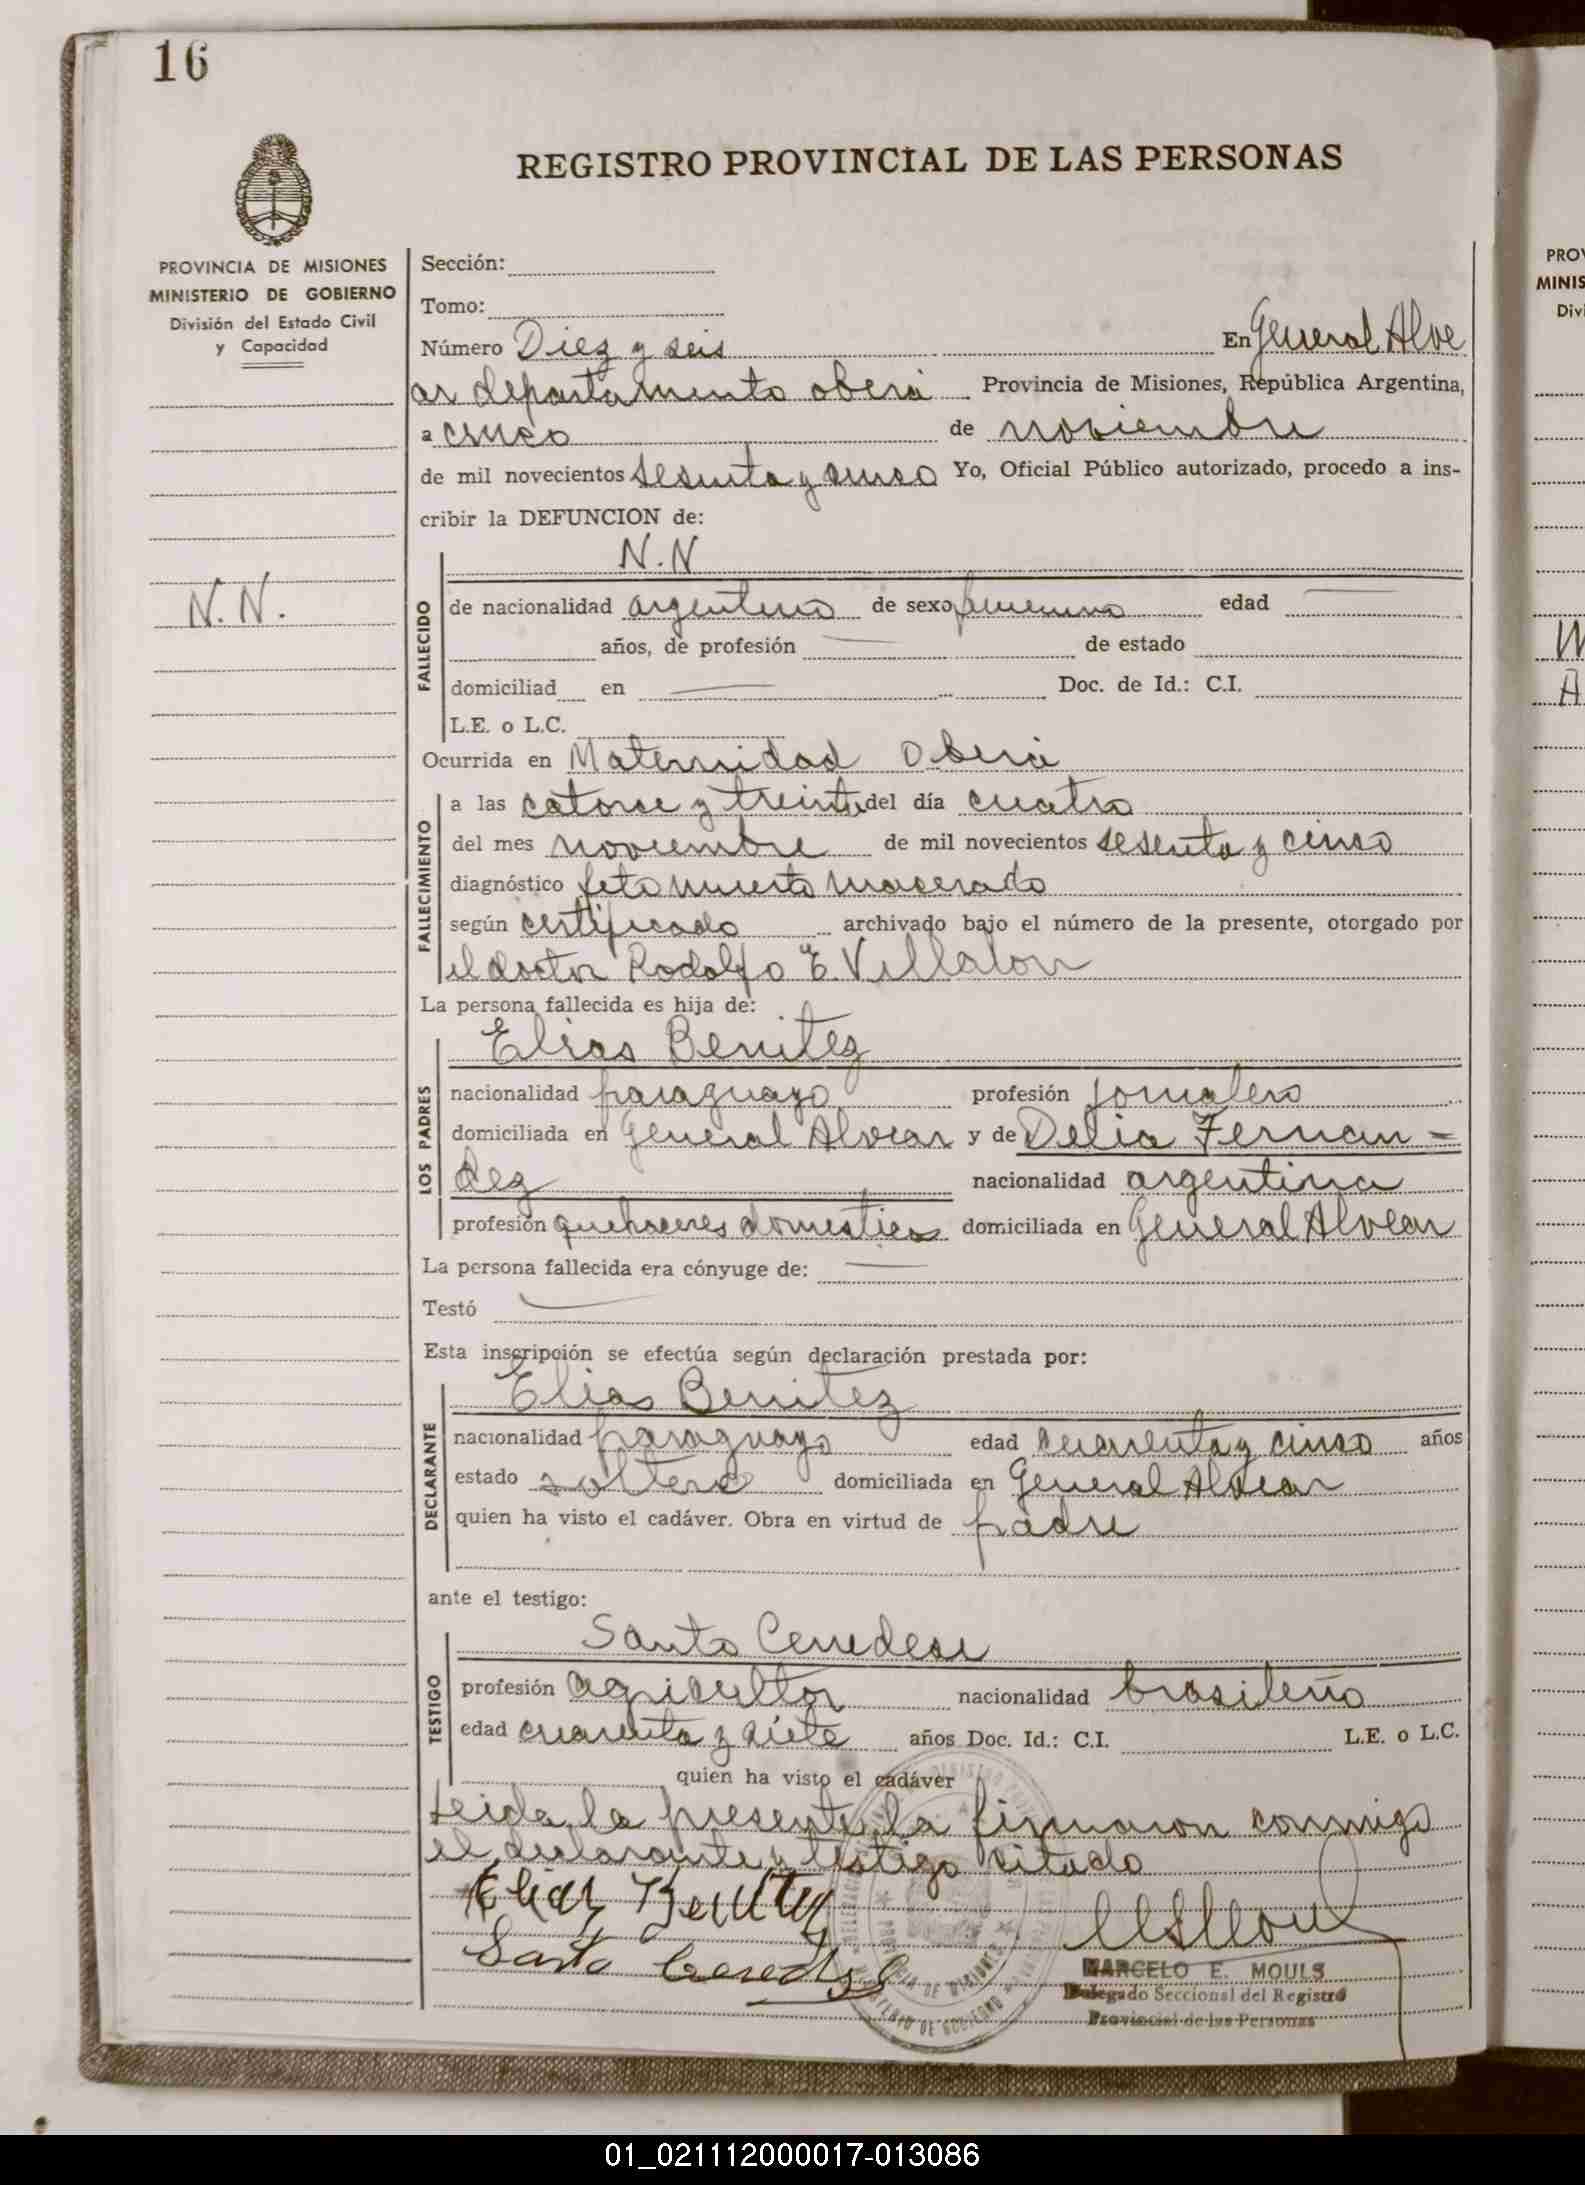 16
REGISTRO PROVINCIAL DE LAS PERSONAS
PROVINCIA DE MISIONES
MINISTERIO DE GOBIERNO
División del Estado Civil
y Capacidad
N.N.
Sección:
Tomo:
Número Diez y seis En General Alve
ar departamento oberá Provincia de Misiones, República Argentina,
a cinco de noviembre
de mil novecientos sesenta y cinco Yo, Oficial Público autorizado, procedo a ins-
cribir la DEFUNCION de:
N.N
FALLECIDO
de nacionalidad argentino de sexo femenino edad
años, de profesión de estado
domiciliad en Doc. de Id.: C.I.
L.E. o L.C.
Ocurrida en Maternidad Oberá
FALLECIMIENTO
a las catorce y treinta del día cuatro
del mes noviembre de mil novecientos sesenta y cinco
diagnóstico feto muerto macerado
según certificado archivado bajo el número de la presente, otorgado por
el doctor Rodolfo E. Villalon
La persona fallecida es hija de:
LOS PADRES
Elias Benitez
nacionalidad paraguayo profesión jornalero
domiciliada en General Alvear y de Delia Fernan=
dez nacionalidad argentina
profesión quehaceres domesticos domiciliada en General Alvear
La persona fallecida era cónyuge de:
Testó
Esta inscripción se efectúa según declaración prestada por:
DECLARANTE
Elias Benitez
nacionalidad paraguayo edad cuarenta y cinco años
estado soltero domiciliada en General Alvear
quien ha visto el cadáver. Obra en virtud de padre
ante el testigo:
TESTIGO
Santo Cenedese
profesión agricultor nacionalidad brasileño
edad cuarenta y siete años Doc. Id.: C.I. L.E. o L.C.
quien ha visto el cadáver
Leida la presente la firmaron conmigo
el declarante y testigo citado
Elias Benitez
Santo Cenedese
MARCELO E. MOULS
Delegado Seccional del Registro
Provincial de las Personas
PROV
MINIS
Divi
01_021112000017-013086